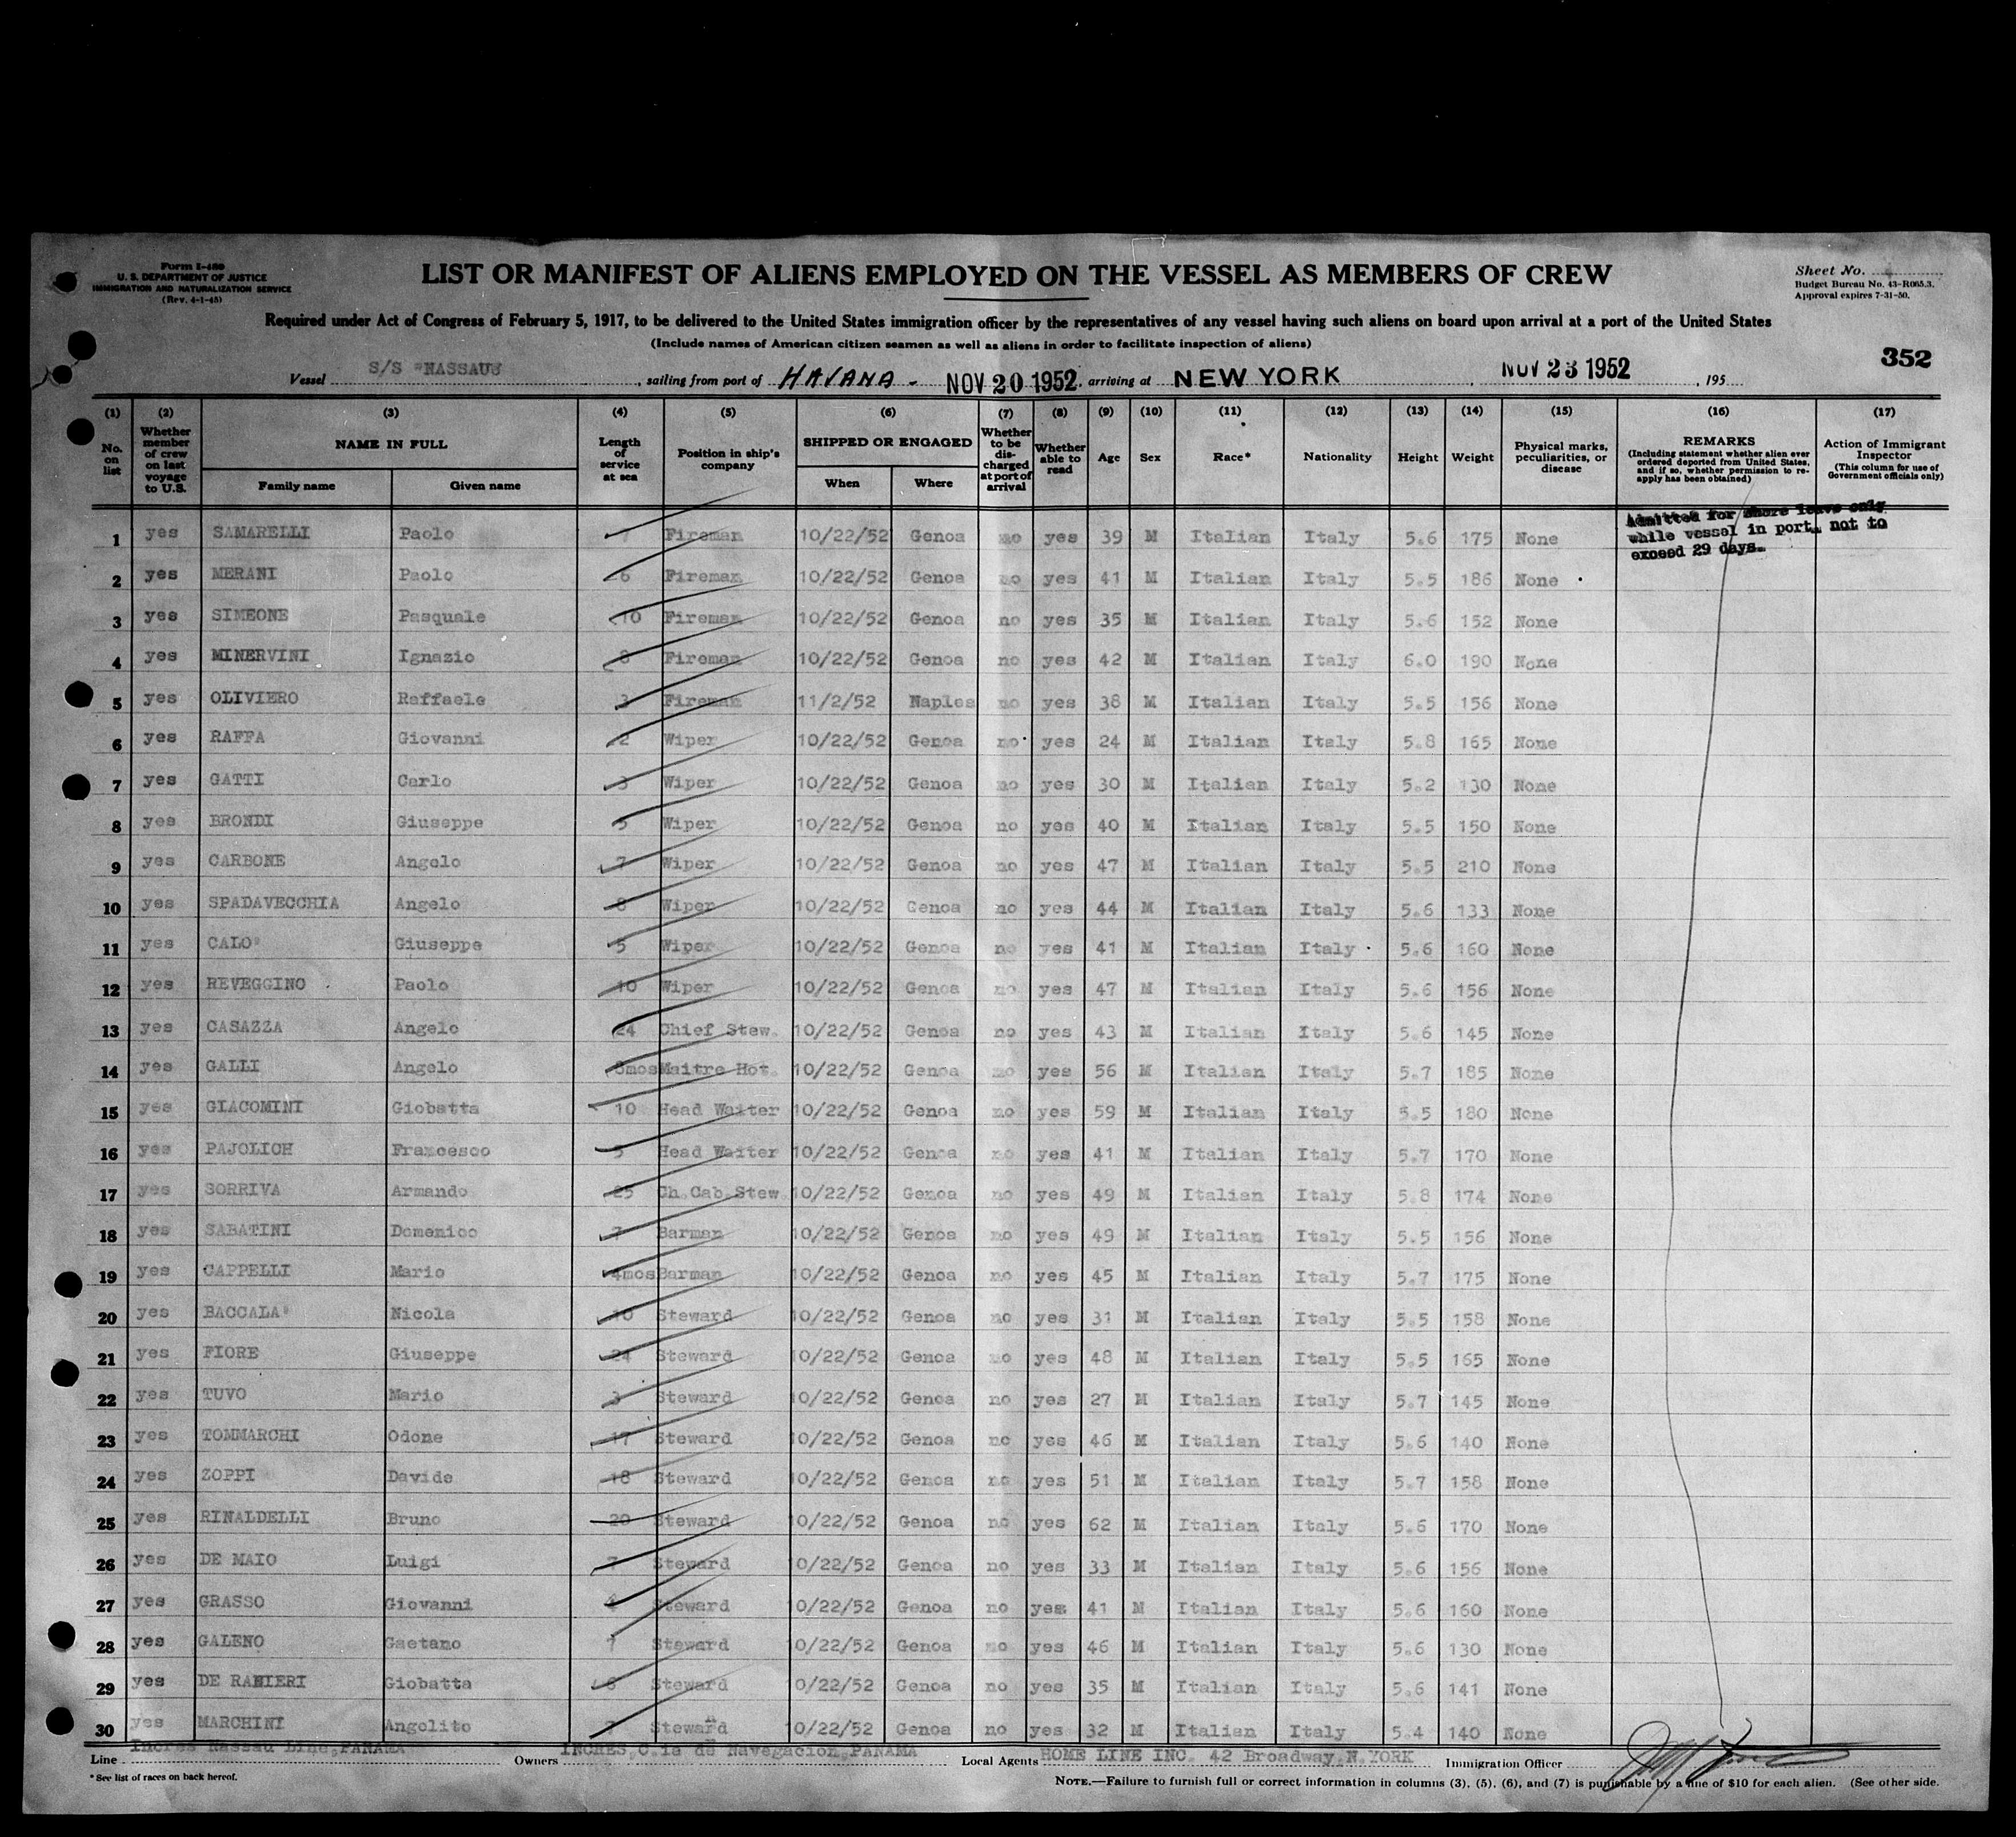 Form I-480
U. S. DEPARTMENT OF JUSTICE
IMMIGRATION AND NATURALIZATION SERVICE
(Rev. 4-1-45)
LIST OR MANIFEST OF ALIENS EMPLOYED ON THE VESSEL AS MEMBERS OF CREW
Sheet No.
Budget Bureau No. 43-R065.3.
Approval expires 7-31-50.
Required under Act of Congress of February 5, 1917, to be delivered to the United States immigration officer by the representatives of any vessel having such aliens on board upon arrival at a port of the United States
(Include names of American citizen seamen as well as aliens in order to facilitate inspection of aliens)
352
Vessel S/S "NASSAU" , sailing from port of HAVANA - NOV 20 1952, arriving at NEW YORK , NOV 23 1952 , 195
(1) (2) (3) (4) (5) (6) (7) (8) (9) (10) (11) (12) (13) (14) (15) (16) (17)
No. on list | Whether member of crew on last voyage to U.S. | NAME IN FULL Family name Given name | Length of service at sea | Position in ship's company | SHIPPED OR ENGAGED When Where | Whether to be discharged at port of arrival | Whether able to read | Age | Sex | Race* | Nationality | Height | Weight | Physical marks, peculiarities, or disease | REMARKS (Including statement whether alien ever ordered deported from United States, and if so, whether permission to reapply has been obtained) | Action of Immigrant Inspector (This column for use of Government officials only)
Admitted for shore leave only
while vessel in port, not to
exceed 29 days.
1 yes SAMARELLI Paolo 7 Fireman 10/22/52 Genoa no yes 39 M Italian Italy 5.6 175 None
2 yes MERANI Paolo 6 Fireman 10/22/52 Genoa no yes 41 M Italian Italy 5.5 186 None
3 yes SIMEONE Pasquale 10 Fireman 10/22/52 Genoa no yes 35 M Italian Italy 5.6 152 None
4 yes MINERVINI Ignazio 8 Fireman 10/22/52 Genoa no yes 42 M Italian Italy 6.0 190 None
5 yes OLIVIERO Raffaele 3 Fireman 11/2/52 Naples no yes 38 M Italian Italy 5.5 156 None
6 yes RAFFA Giovanni 2 Wiper 10/22/52 Genoa no yes 24 M Italian Italy 5.8 165 None
7 yes GATTI Carlo 3 Wiper 10/22/52 Genoa no yes 30 M Italian Italy 5.2 130 None
8 yes BRONDI Giuseppe 5 Wiper 10/22/52 Genoa no yes 40 M Italian Italy 5.5 150 None
9 yes CARBONE Angelo 7 Wiper 10/22/52 Genoa no yes 47 M Italian Italy 5.5 210 None
10 yes SPADAVECCHIA Angelo 8 Wiper 10/22/52 Genoa no yes 44 M Italian Italy 5.6 133 None
11 yes CALO' Giuseppe 5 Wiper 10/22/52 Genoa no yes 41 M Italian Italy 5.6 160 None
12 yes REVEGGINO Paolo 10 Wiper 10/22/52 Genoa no yes 47 M Italian Italy 5.6 156 None
13 yes CASAZZA Angelo 24 Chief Stew. 10/22/52 Genoa no yes 43 M Italian Italy 5.6 145 None
14 yes GALLI Angelo 8mos Maitre Hot. 10/22/52 Genoa no yes 56 M Italian Italy 5.7 185 None
15 yes GIACOMINI Giobatta 10 Head Waiter 10/22/52 Genoa no yes 59 M Italian Italy 5.5 180 None
16 yes PAJOLICH Francesco 5 Head Waiter 10/22/52 Genoa no yes 41 M Italian Italy 5.7 170 None
17 yes SORRIVA Armando 25 Ch.Cab.Stew. 10/22/52 Genoa no yes 49 M Italian Italy 5.8 174 None
18 yes SABATINI Domenico 7 Barman 10/22/52 Genoa no yes 49 M Italian Italy 5.5 156 None
19 yes CAPPELLI Mario 4mos Barman 10/22/52 Genoa no yes 45 M Italian Italy 5.7 175 None
20 yes BACCALA' Nicola 10 Steward 10/22/52 Genoa no yes 31 M Italian Italy 5.5 158 None
21 yes FIORE Giuseppe 24 Steward 10/22/52 Genoa no yes 48 M Italian Italy 5.5 165 None
22 yes TUVO Mario 3 Steward 10/22/52 Genoa no yes 27 M Italian Italy 5.7 145 None
23 yes TOMMARCHI Odone 17 Steward 10/22/52 Genoa no yes 46 M Italian Italy 5.6 140 None
24 yes ZOPPI Davide 18 Steward 10/22/52 Genoa no yes 51 M Italian Italy 5.7 158 None
25 yes RINALDELLI Bruno 20 Steward 10/22/52 Genoa no yes 62 M Italian Italy 5.6 170 None
26 yes DE MAIO Luigi 7 Steward 10/22/52 Genoa no yes 33 M Italian Italy 5.6 156 None
27 yes GRASSO Giovanni 4 Steward 10/22/52 Genoa no yes 41 M Italian Italy 5.6 160 None
28 yes GALENO Gaetano 7 Steward 10/22/52 Genoa no yes 46 M Italian Italy 5.6 130 None
29 yes DE RANIERI Giobatta 6 Steward 10/22/52 Genoa no yes 35 M Italian Italy 5.6 141 None
30 yes MARCHINI Angolito 7 Steward 10/22/52 Genoa no yes 32 M Italian Italy 5.4 140 None
Line Incres Nassau Line, PANAMA Owners INCRES, C.ia de Navegacion, PANAMA Local Agents HOME LINE INC. 42 Broadway, N.YORK Immigration Officer
* See list of races on back hereof.
NOTE.—Failure to furnish full or correct information in columns (3), (5), (6), and (7) is punishable by a fine of $10 for each alien. (See other side.